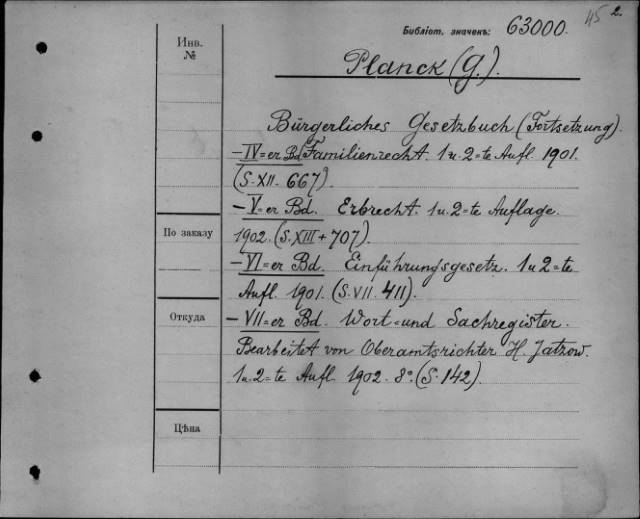 45 2.
Библіот. значекъ: 63000.
Инв.
№
Planck (G.).
Bürgerliches Gesetzbuch (Fortsetzung).
– IV=er Bd. Familienrecht. 1 u. 2=te Aufl. 1901.
(S. XII. 667).
– V=er Bd. Erbrecht. 1 u. 2=te Auflage.
По заказу
1902. (S. XIII + 707).
– VI=er Bd. Einführungsgesetz. 1 u 2=te
Aufl. 1901. (S. VII. 411).
Откуда
– VII=er Bd. Wort=und Sachregister.
Bearbeitet von Oberamtsrichter H. Jatzow.
1 u. 2=te Aufl. 1902. 8º. (S. 142).
Цѣна